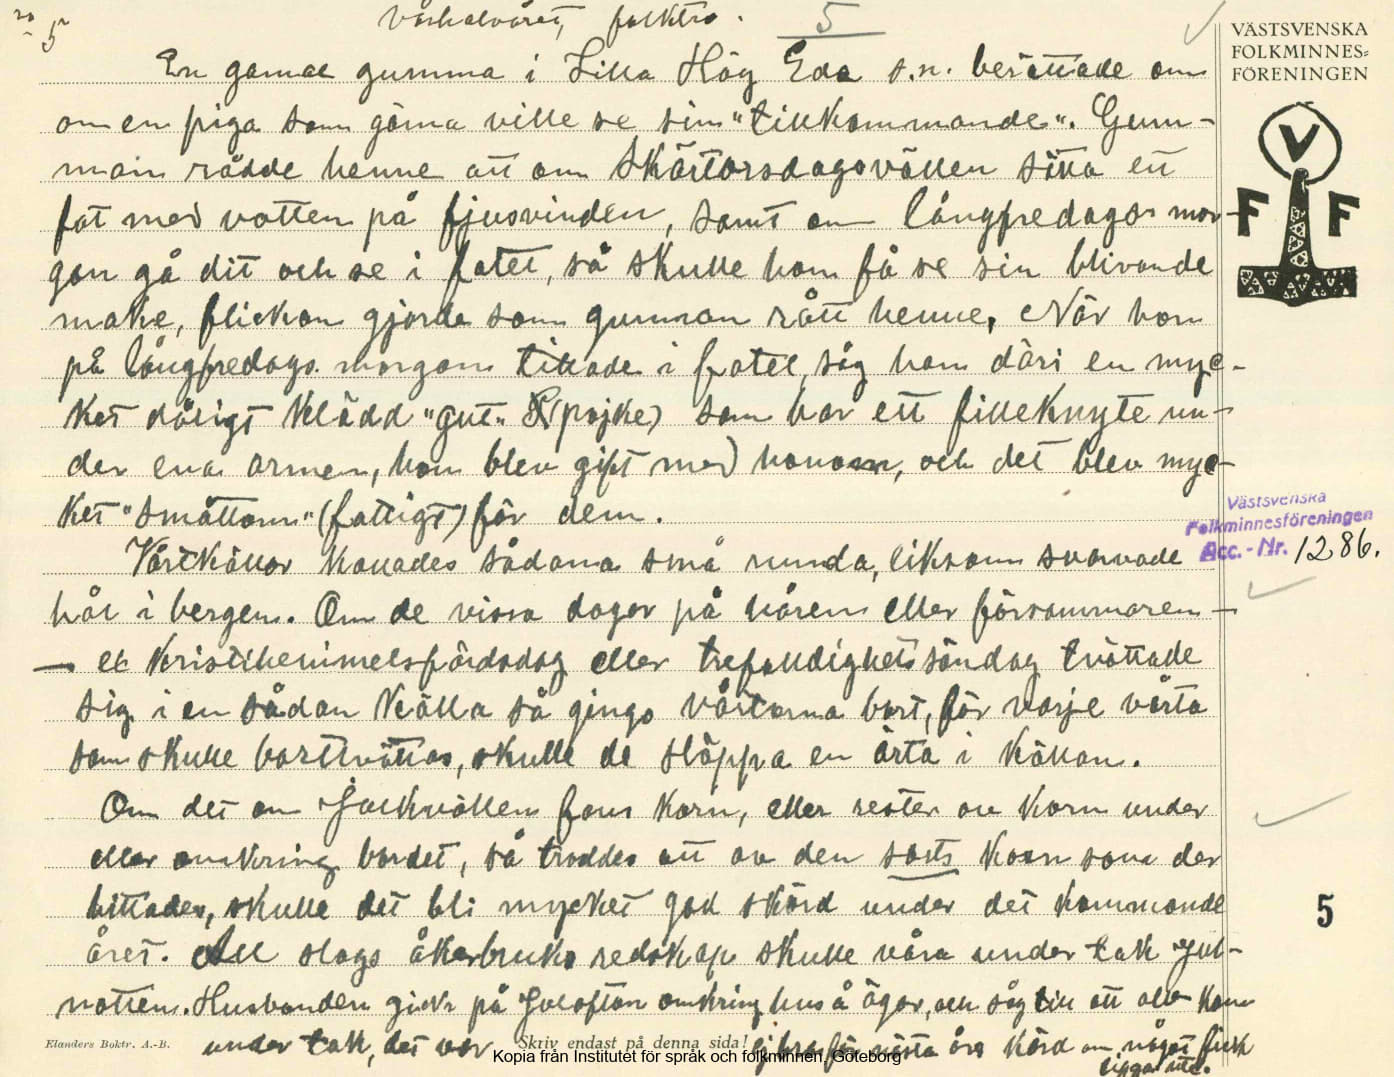 5
5
VÄSTSVENSKA
FOLKMINNES-
FÖRENINGEN
En gammal gumma i Lilla Hög Eda s.n. berättade om
om en piga som gärna ville se sin "tillkommande". Gum-
man rådde henne att om Skärtorsdagsvällen sätta ett
fat med vatten på fjusvinden, samt om långfredagsmor-
gon gå dit och se i fatet, så skulle hon få se sin blivande
make, flickan gjorde som gumman rått henne. När hon
på långfredags morgonen tittade i fatet, såg hon däri en myc-
ket dåligt klädd "gut" (pojke) som bar ett filleknyte un-
der ena armen, hon blev gift med honom, och det blev myc-
ket "småttom" (fattigt) för dem.
Vårtkällor kallades sådana små runda, liksom svarvade
hål i bergen. Om de vissa dagar på våren eller försommaren -
- ex Kristihimmelsfärdsdag eller trefaldighetssöndag tvättade
sig i en sådan källa så gingo vårtorna bort, för varje vårta
som skulle borttvättas, skulle de släppa en ärta i källan.
Om det om Julkvällen fans korn, eller rester av korn under
eller omkring bordet, så troddes att av den sorts korn som der
hittades, skulle det bli mycket god skörd under det kommande
året. All slags åkerbruks redskap skulle vara under tak Jul-
natten. Husbonden gick på Julafton omkring hus å ägor, och såg till att allt kom
under tak, det var för nästa års skörd om något fick
ligga ute.
F V F
Västsvenska
Folkminnesföreningen
Acc.-Nr. 1286.
5
Elanders Boktr. A.-B.
Skriv endast på denna sida!
Kopia från Institutet för språk och folkminnen, Göteborg